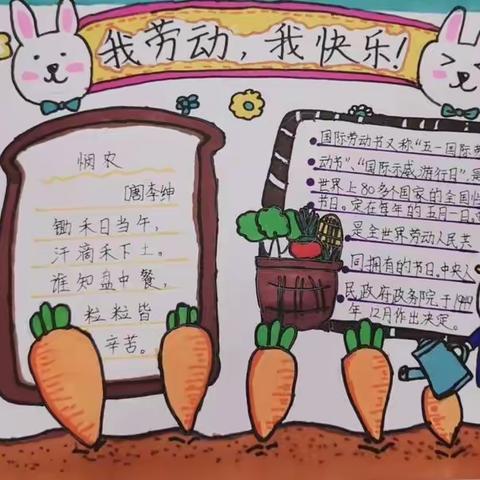 我劳动，我快乐！
悯农
[唐]李绅
锄禾日当午，
汗滴禾下土。
谁知盘中餐，
粒粒皆
辛苦。
国际劳动节又称“五一国际劳
动节”、“国际示威游行日”，是
世界上80多个国家的全国性
节日。定在每年的五月一日。
是全世界劳动人民共
同拥有的节日，中央人
民政府政务院于1949
年12月作出决定。